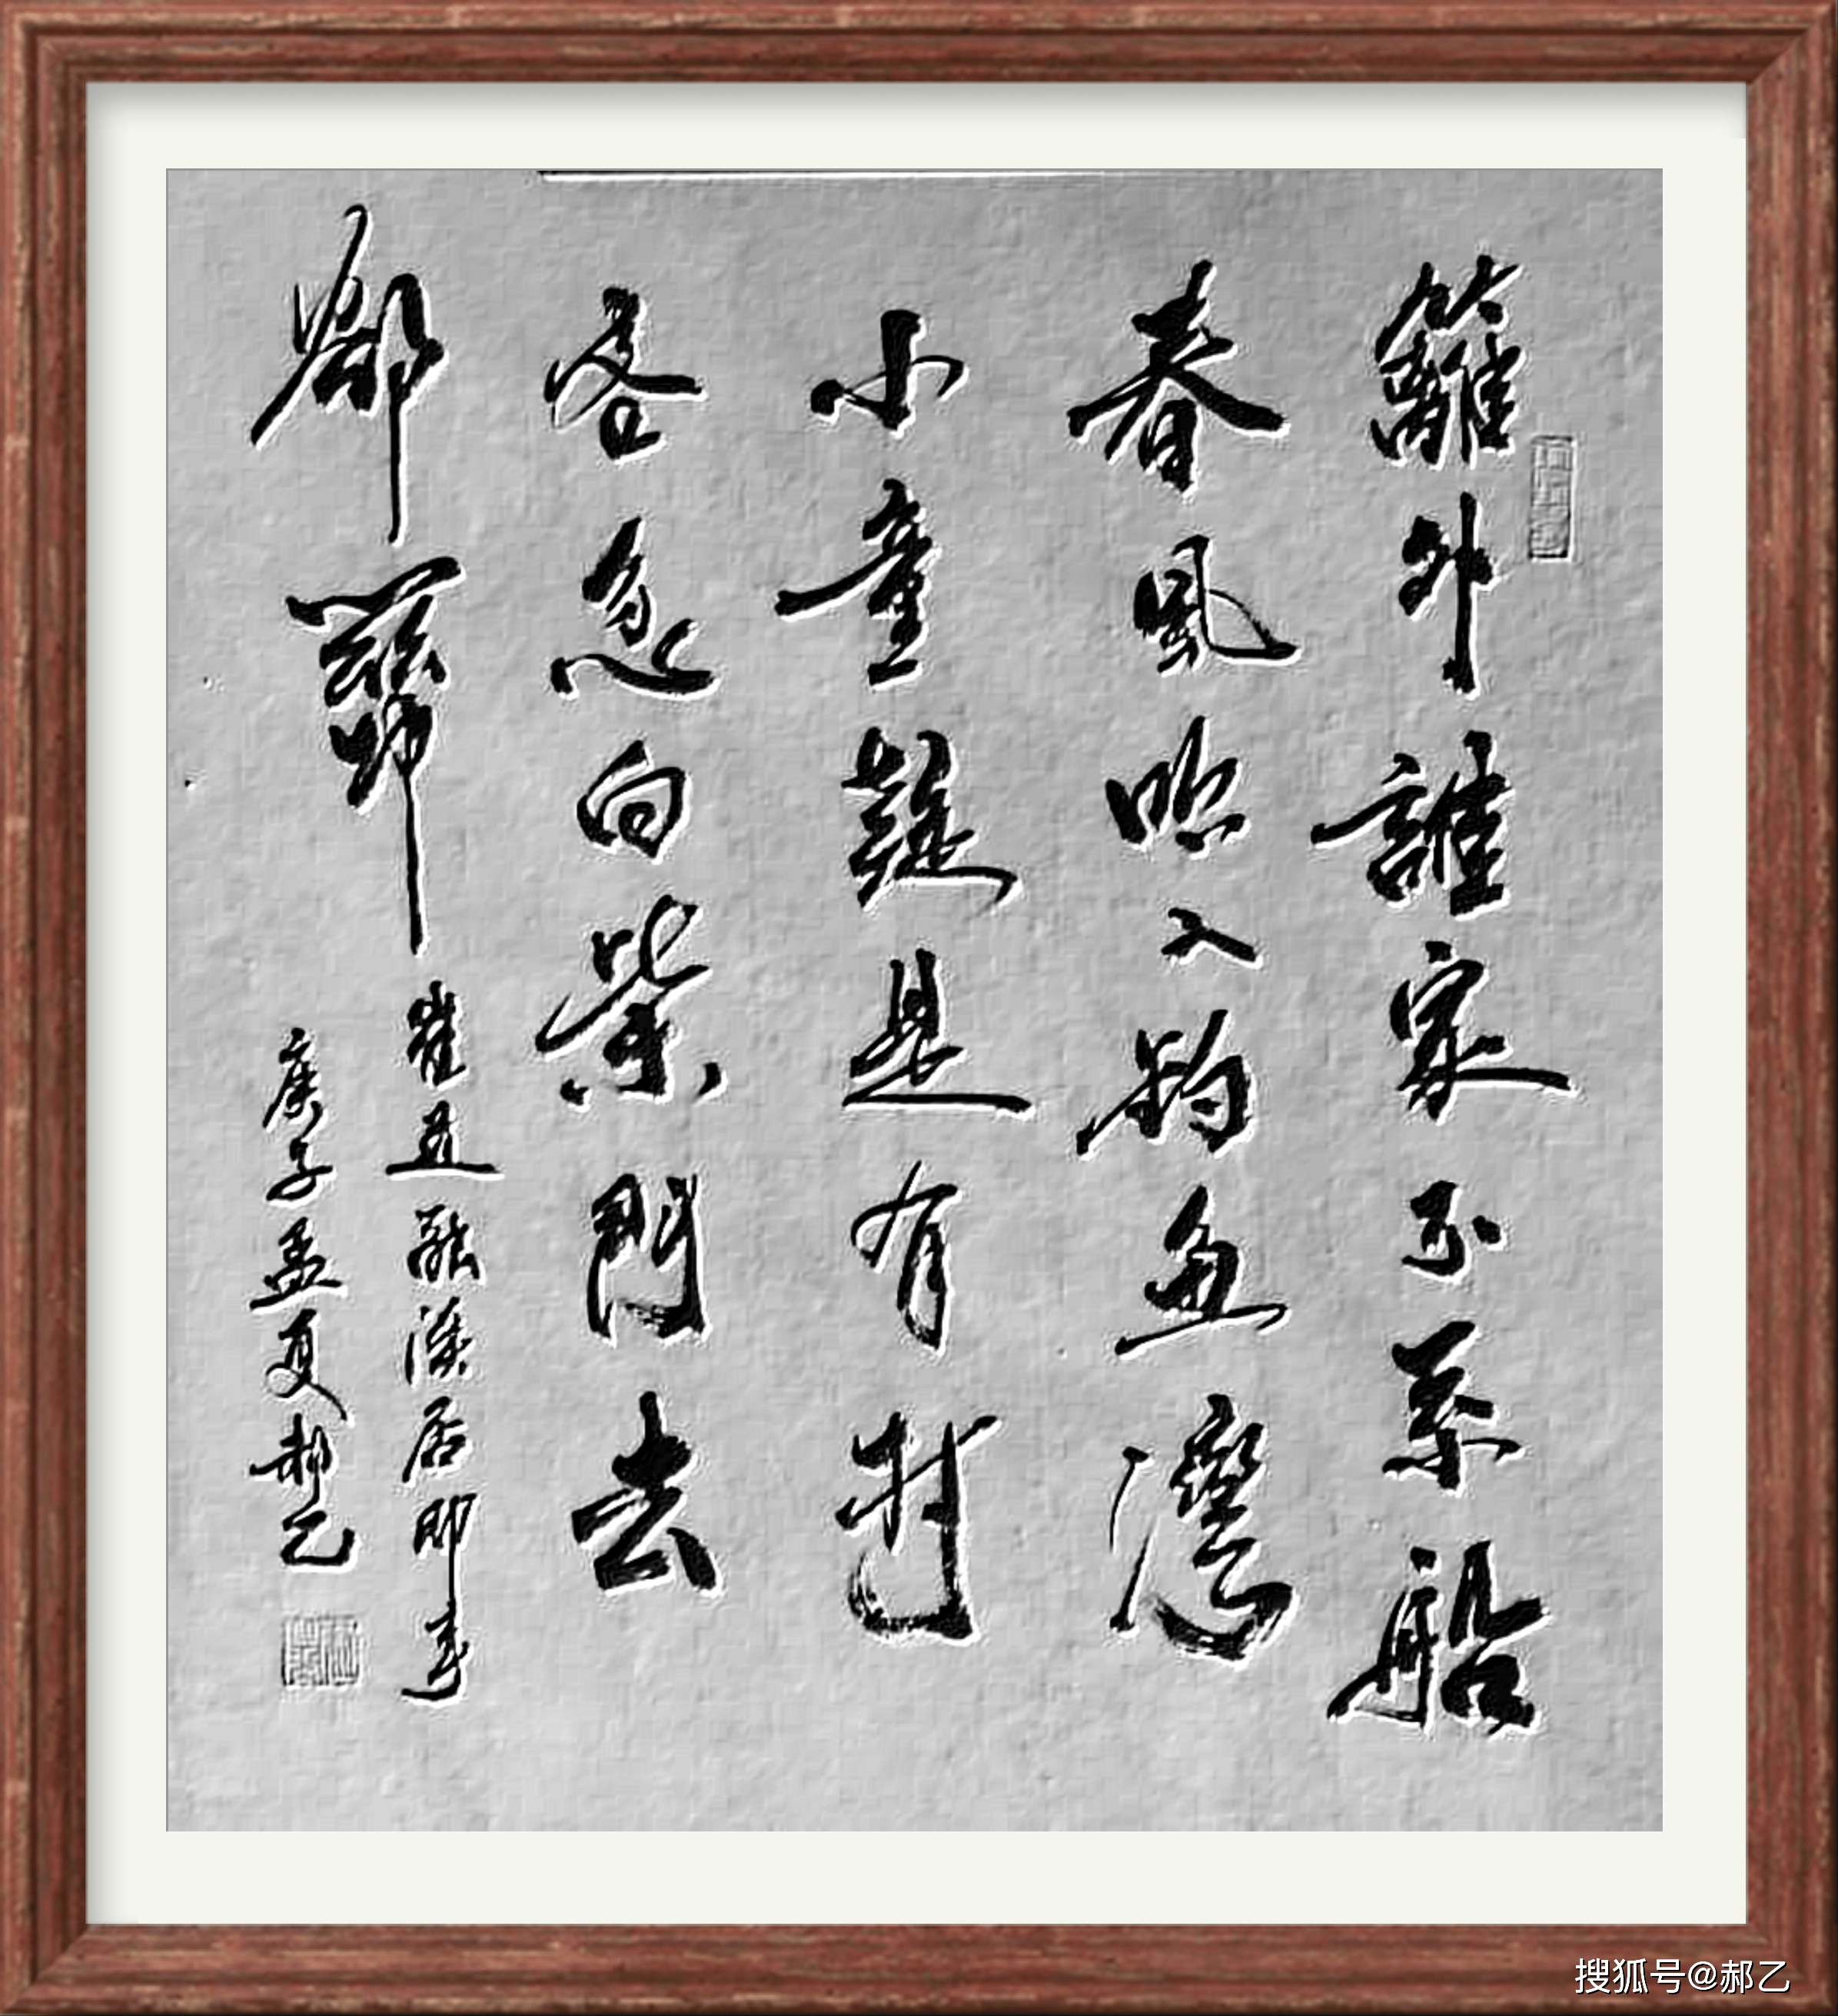 籬外誰家不系船
春風吹入釣魚灣
小童疑是有村
客急向柴門去
卻關
崔道融溪居即事
庚子孟夏郝乙
搜狐号@郝乙